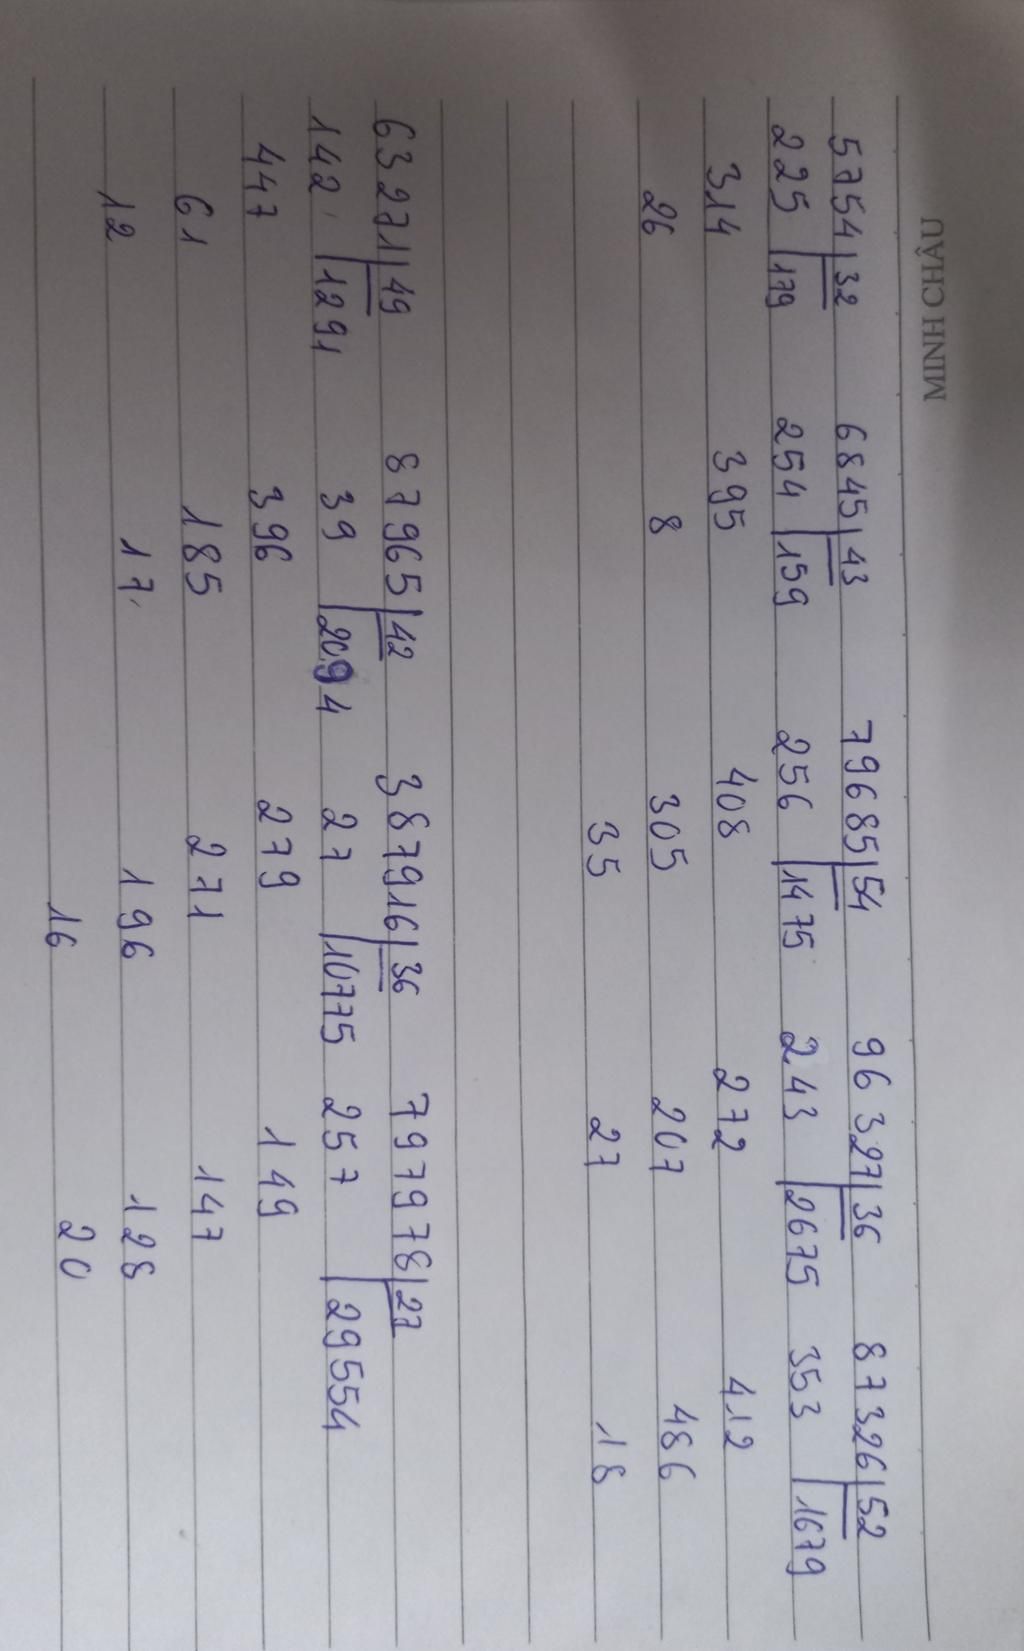 MINH CHÂU
5754 32 6845 43 79685 54 96327 36 87326 52
225 179 254 159 256 1475 243 2675 353 1679
314 395 408 272 412
26 8 305 207 486
35 27 18
63271 49 87965 42 387916 36 797978 27
142 1291 39 2094 27 10775 257 29554
447 396 279 149
61 185 271 147
12 17 196 128
16 20